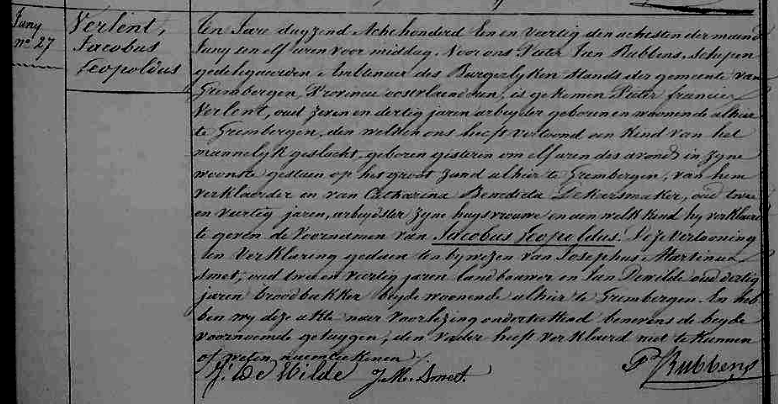 Juny
n° 27
Verlent,
Jacobus
Leopoldus
Ten Jare duyzend Achthonderd Een en veertig den achtsten der maand
Juny en elf uren voor middag. Voor ons Pieter Jan Rubbens, Schepen
gedelegueerden Ambtenaer des Burgerlyken Stands der gemeente van
Grembergen, Provincie oostvlaenderen, is gekomen Pieter francies
Verlent, oud zeven en dertig jaren arbeyder geboren en woonende alhier
te Grembergen, den welken ons heeft vertoond een Kind van het
mannelyk geslacht, geboren gisteren om elf uren des avonds in zyne
woonste gestaen op het groot Zand alhier te Grembergen, van hem
verklaerder en van Catharina Benedicta Dekersmaker, oud twee
en veertig jaren, arbeydster zyne huysvrouwe en aen welk Kind hy verklaerd
te geven de voornamen van Jacobus Leopoldus. Deze vertooning
en Verklaring gedaen ten bywezen van Josephus Martinus
Smet, oud twee en veertig jaren landbouwer en Jan Dewilde oud dertig
jaren broodbakker beyde woonende alhier te Grembergen. En heb
ben wy deze akte naer voorlezing onderteekend benevens de beyde
voornoemde getuygen, den vader heeft verklaerd niet te kunnen
of weten naemteekenen /.
J: De Wilde J M. Smet. P Rubbens